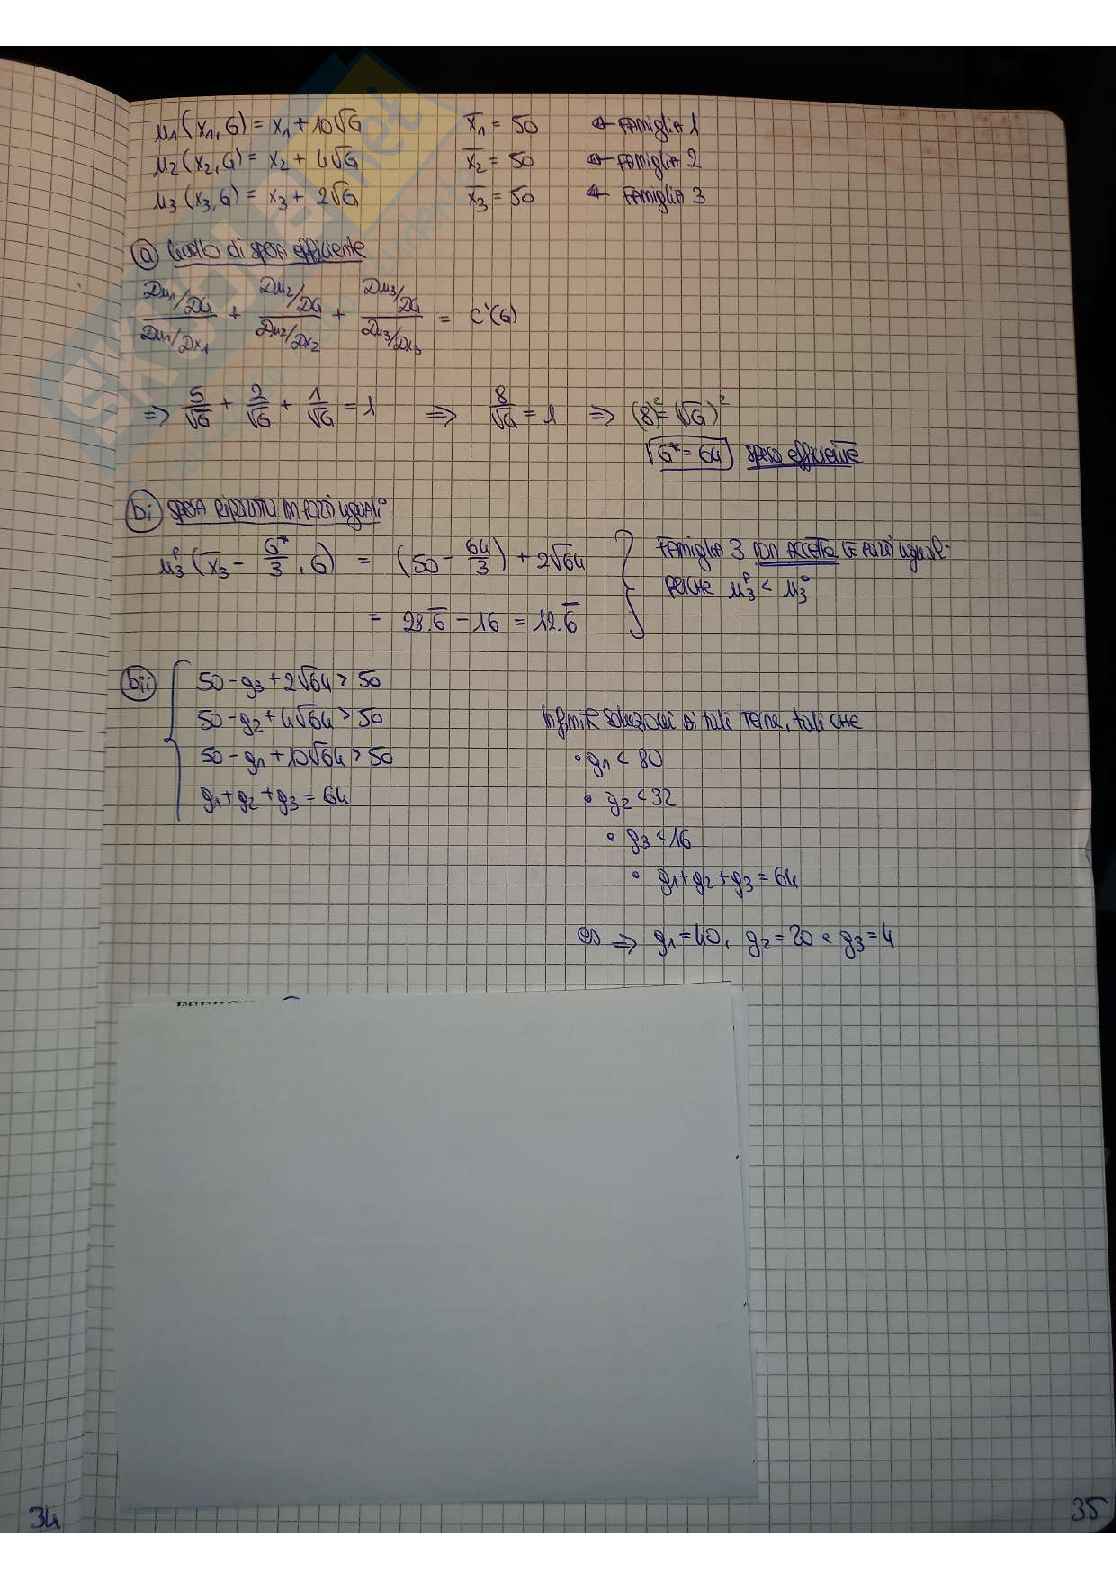 μ₁(x₁,G) = x₁ + 10√G x̄₁ = 50 ← famiglia 1
μ₂(x₂,G) = x₂ + 4√G x̄₂ = 50 ← famiglia 2
μ₃(x₃,G) = x₃ + 2√G x̄₃ = 50 ← famiglia 3
a) livello di spesa efficiente
(Du₁/DG)/(Du₁/Dx₁) + (Du₂/DG)/(Du₂/Dx₂) + (Du₃/DG)/(Du₃/Dx₃) = C'(G)
⇒ 5/√G + 2/√G + 1/√G = 1 ⇒ 8/√G = 1 ⇒ (8)² = (√G)²
G* = 64 spesa efficiente
bi) spesa ripartita in parti uguali
μ₃ᵖ(x̄₃ - G*/3, G) = (50 - 64/3) + 2√64
= 28.6̄ - 16 = 12.6̄
famiglia 3 non accetta le parti uguali
perché μ₃ᵖ < μ₃⁰
bii) 50 - g₃ + 2√64 > 50
50 - g₂ + 4√64 > 50
50 - g₁ + 10√64 > 50
g₁ + g₂ + g₃ = 64
infinite soluzioni di tali terne, tali che
• g₁ < 80
• g₂ < 32
• g₃ < 16
• g₁ + g₂ + g₃ = 64
es ⇒ g₁ = 40, g₂ = 20 e g₃ = 4
34
35